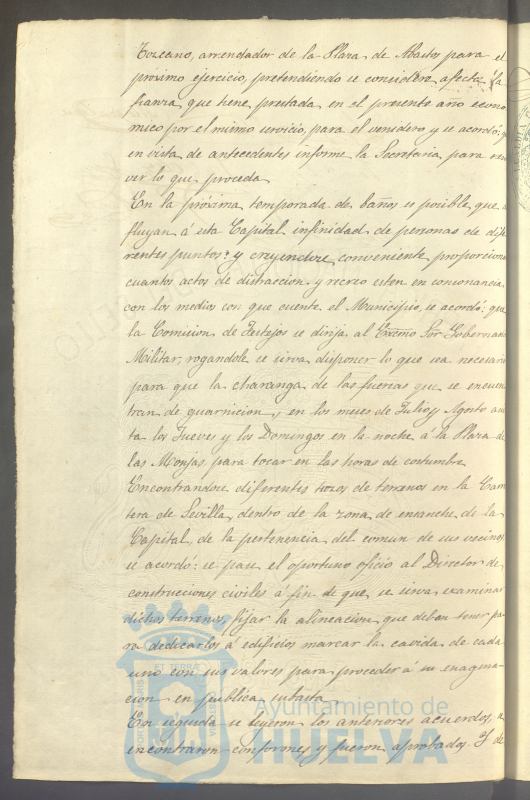 Tozcano, arrendador de la Plaza de Abastos para el
próximo ejercicio, pretendiendo se considere afecta la
fianza que tiene prestada en el presente año econo
mico por el mismo servicio, para el venidero y se acordó: q
en vista de antecedentes informe la Secretaria para
ver lo que proceda
En la próxima temporada de baños es posible que
fluyan á esta Capital infinidad de personas de dife
rentes puntos y creyendose conveniente proporcion
cuantos actos de distraccion y recreo esten en consonancia
con los medios con que cuente el Municipio, se acordó: que
la Comision de Festejos se dirija al Excmo Sor Gobernad
Militar, rogandole se sirva disponer lo que sea necesari
para que la charanga de las fuerzas que se encuen
tran de guarnicion, en los meses de Julio y Agosto
ta los Jueves y los Domingos en la noche á la Plaza de
las Monjas para tocar en las horas de costumbre
Encontrandose diferentes trozos de terrenos en la Carre
tera de Sevilla dentro de la zona de ensanche de la
Capital, de la pertenencia del comun de sus vecinos
se acordó: se pase el oportuno oficio al Director de
construcciones civiles á fin de que se sirva examinar
dichos terrenos, fijar la alineacion que deban tener pa
ra dedicarlos á edificios marcar la cavida de cada
uno con sus valores para proceder á su enagena
cion en publica subasta
En seguida se leyeron los anteriores acuerdos, se
encontraron conformes y fueron aprobados. Y de
ET TERRAE
Ayuntamiento de
HUELVA